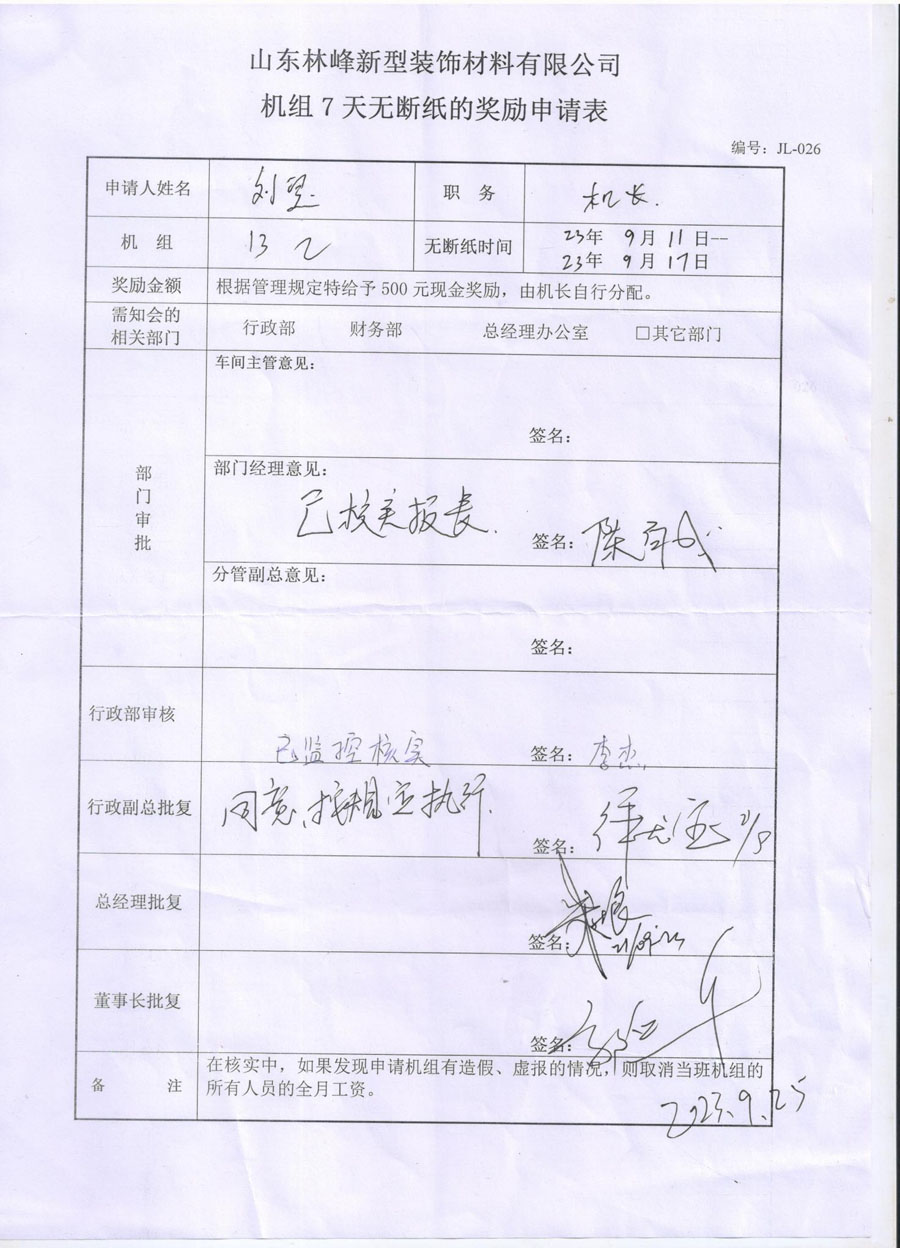 山东林峰新型装饰材料有限公司
机组7天无断纸的奖励申请表
编号：JL-026
申请人姓名 刘 职 务 机长.
机 组 13 乙 无断纸时间 23年 9月 11日--
23年 9月 17日
奖励金额 根据管理规定特给予500元现金奖励，由机长自行分配。
需知会的
相关部门 行政部 财务部 总经理办公室 □其它部门
车间主管意见：
签名：
部
门
审
批
部门经理意见：
已核米报表
签名：
分管副总意见：
签名：
行政部审核 已监控核实 签名：李杰
行政副总批复 同意、按规定执行. 签名：
总经理批复 签名： 21/09.23
董事长批复 签名：
备 注 在核实中，如果发现申请机组有造假、虚报的情况，则取消当班机组的
所有人员的全月工资。
2023.9.25